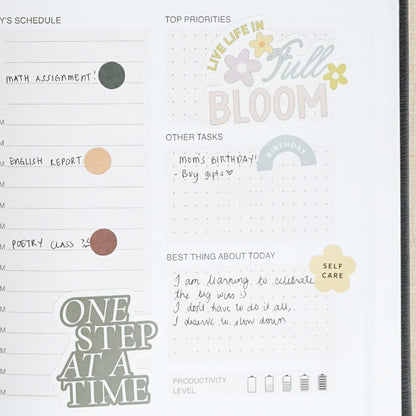 Y'S SCHEDULE
MATH ASSIGNMENT!
ENGLISH REPORT
POETRY CLASS
ONE
STEP
AT A
TIME
TOP PRIORITIES
LIVE LIFE IN
Full
BLOOM
OTHER TASKS
MOM'S BIRTHDAY!
- Buy gifts ♡
BIRTHDAY
BEST THING ABOUT TODAY
SELF
CARE
I am learning to celebrate
the big wins :)
I don't have to do it all,
I deserve to slow down
PRODUCTIVITY
LEVEL